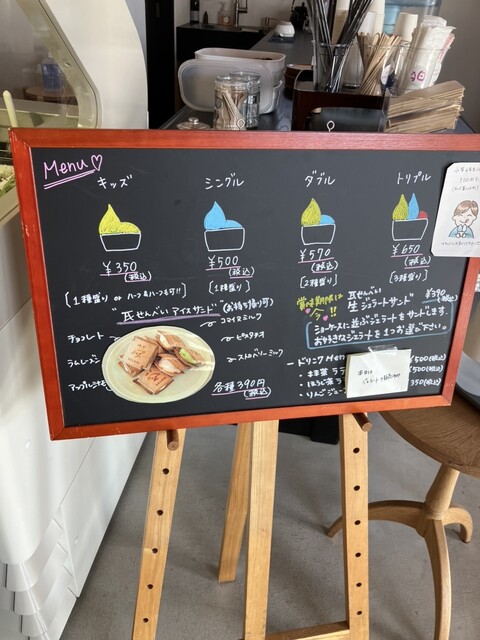 Menu♡
キッズ
シングル
ダブル
トリプル
¥350
(税込)
¥500
(税込)
¥570
(税込)
¥650
(税込)
[1種盛り or ハーフ&ハーフも可!!]
[1種盛り]
[2種盛り]
[3種盛り]
"瓦せんべいアイスサンド"
(お持ち帰り可)
チョコレート
ラムレーズン
コマイスミルク
ピスタチオ
ストロベリーミルク
各種390円
(税込)
賞味期限は
今!!
瓦せんべい
生ジェラートサンド
¥390
(税込)
ショーケースに並ぶジェラートをサンドします。
お好きなジェラートを1つお選び下さい。
ードリンク
・抹茶ラテ
(税込)
・ほうじ茶ラ
¥500(税込)
・りんごジュー
350(税込)